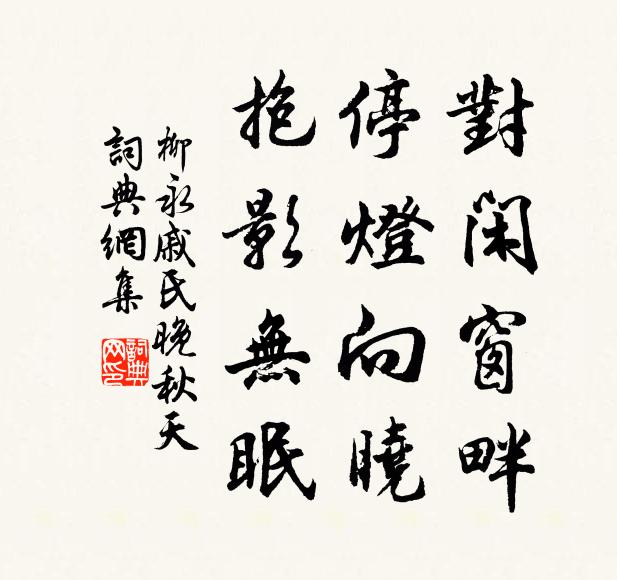 對閑窗畔
停燈向曉
抱影無眠
柳永戚氏晚秋天
詞典網集
詞典
网印